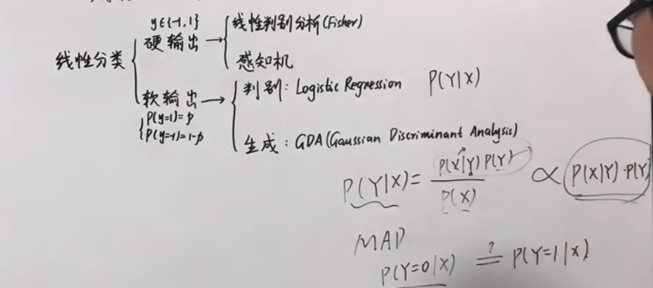 y∈{-1,1}
线性分类 { 硬输出 → { 线性判别分析(Fisher)
感知机
软输出 → { 判别: Logistic Regression P(Y|X)
{ P(y=1)=p
P(y=-1)=1-p
生成: GDA(Gaussian Discriminant Analysis)
P(Y|X) = P(X|Y) P(Y) / P(X) ∝ P(X|Y)·P(Y)
MAP
P(Y=0|X) ?= P(Y=1|X)